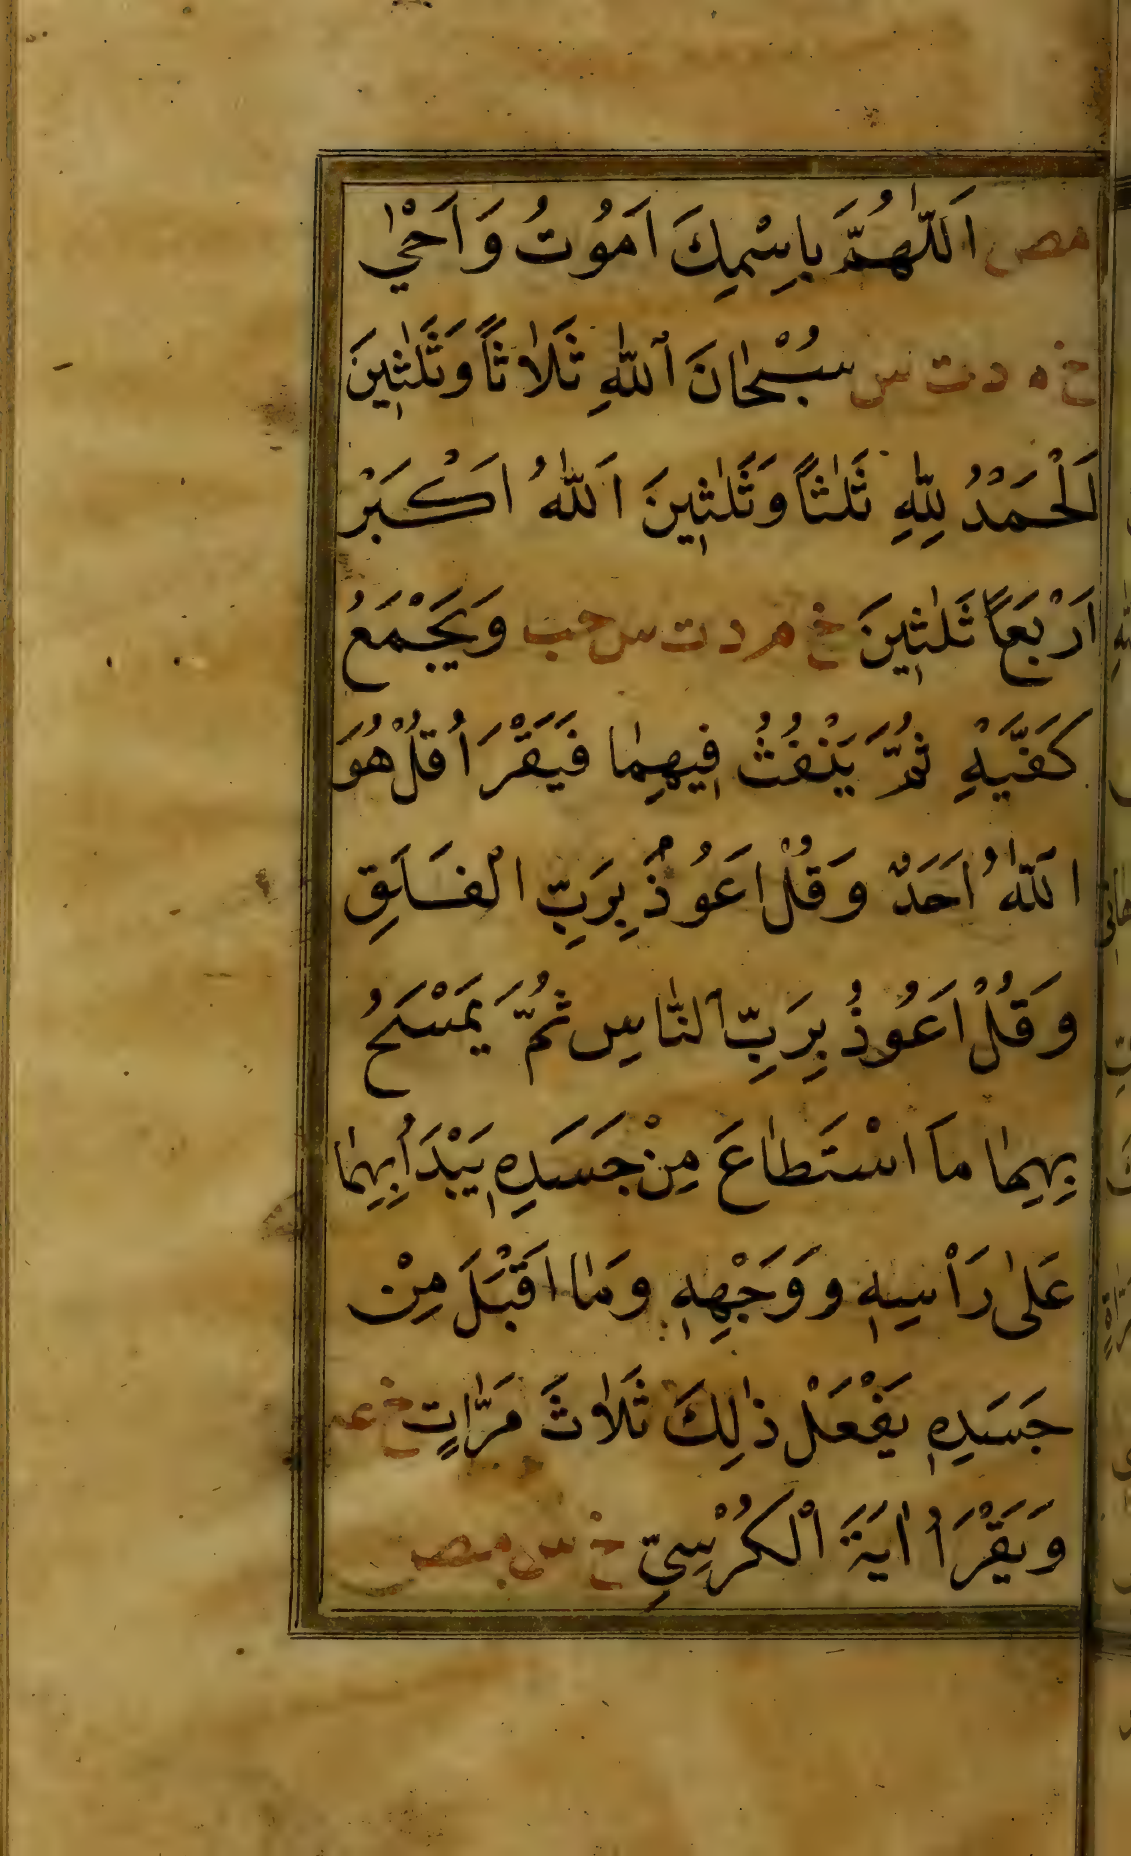 مص اَللّٰهُمَّ بِاِسْمِكَ اَمُوتُ وَاَحْيٰ
خ م د ت س سُبْحٰانَ اللّٰهِ ثَلٰاثاً وَثَلٰثِينَ
اَلْحَمْدُ لِلّٰهِ ثَلٰثاً وَثَلٰثِينَ اَللّٰهُ اَكْبَرْ
اَرْبَعاً ثَلٰثِينَ خ م د ت س حب وَيَجْمَعُ
كَفَّيْهِ ثُمَّ يَنْفُثُ فِيهِمٰا فَيَقْرَاُ قُلْ هُوَ
اللّٰهُ اَحَدٌ وَقُلْ اَعُوذُ بِرَبِّ الْفَلَقِ
وَقُلْ اَعُوذُ بِرَبِّ النّٰاسِ ثُمَّ يَمْسَحُ
بِهِمٰا مَا اسْتَطٰاعَ مِنْ جَسَدِهِ يَبْدَاُ بِهِمٰا
عَلٰى رَاْسِهِ وَوَجْهِهِ وَمٰا اَقْبَلَ مِنْ
جَسَدِهِ يَفْعَلْ ذٰلِكَ ثَلٰاثَ مَرّٰاتٍ خ عه
وَيَقْرَاُ اٰيَةَ الْكُرْسِيِّ خ س مص